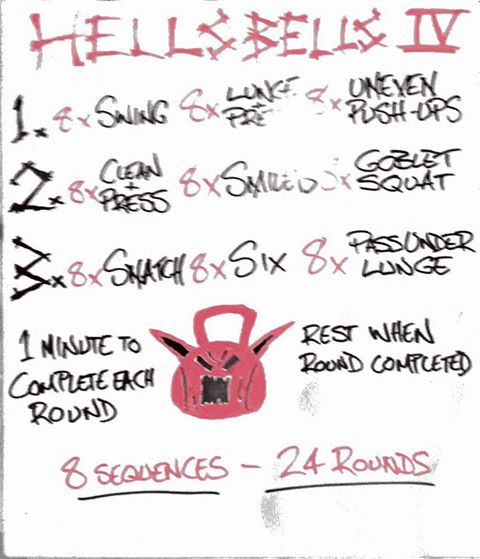 HELLS BELLS IV
1. 8x SWING 8x LUNGE + PRE 8x UNEVEN PUSH-UPS
2. 8x CLEAN + PRESS 8x 8x GOBLET SQUAT
3. 8x SNATCH 8x SIX 8x PASSUNDER LUNGE
1 MINUTE TO
COMPLETE EACH
ROUND
REST WHEN
ROUND COMPLETED
8 SEQUENCES – 24 ROUNDS